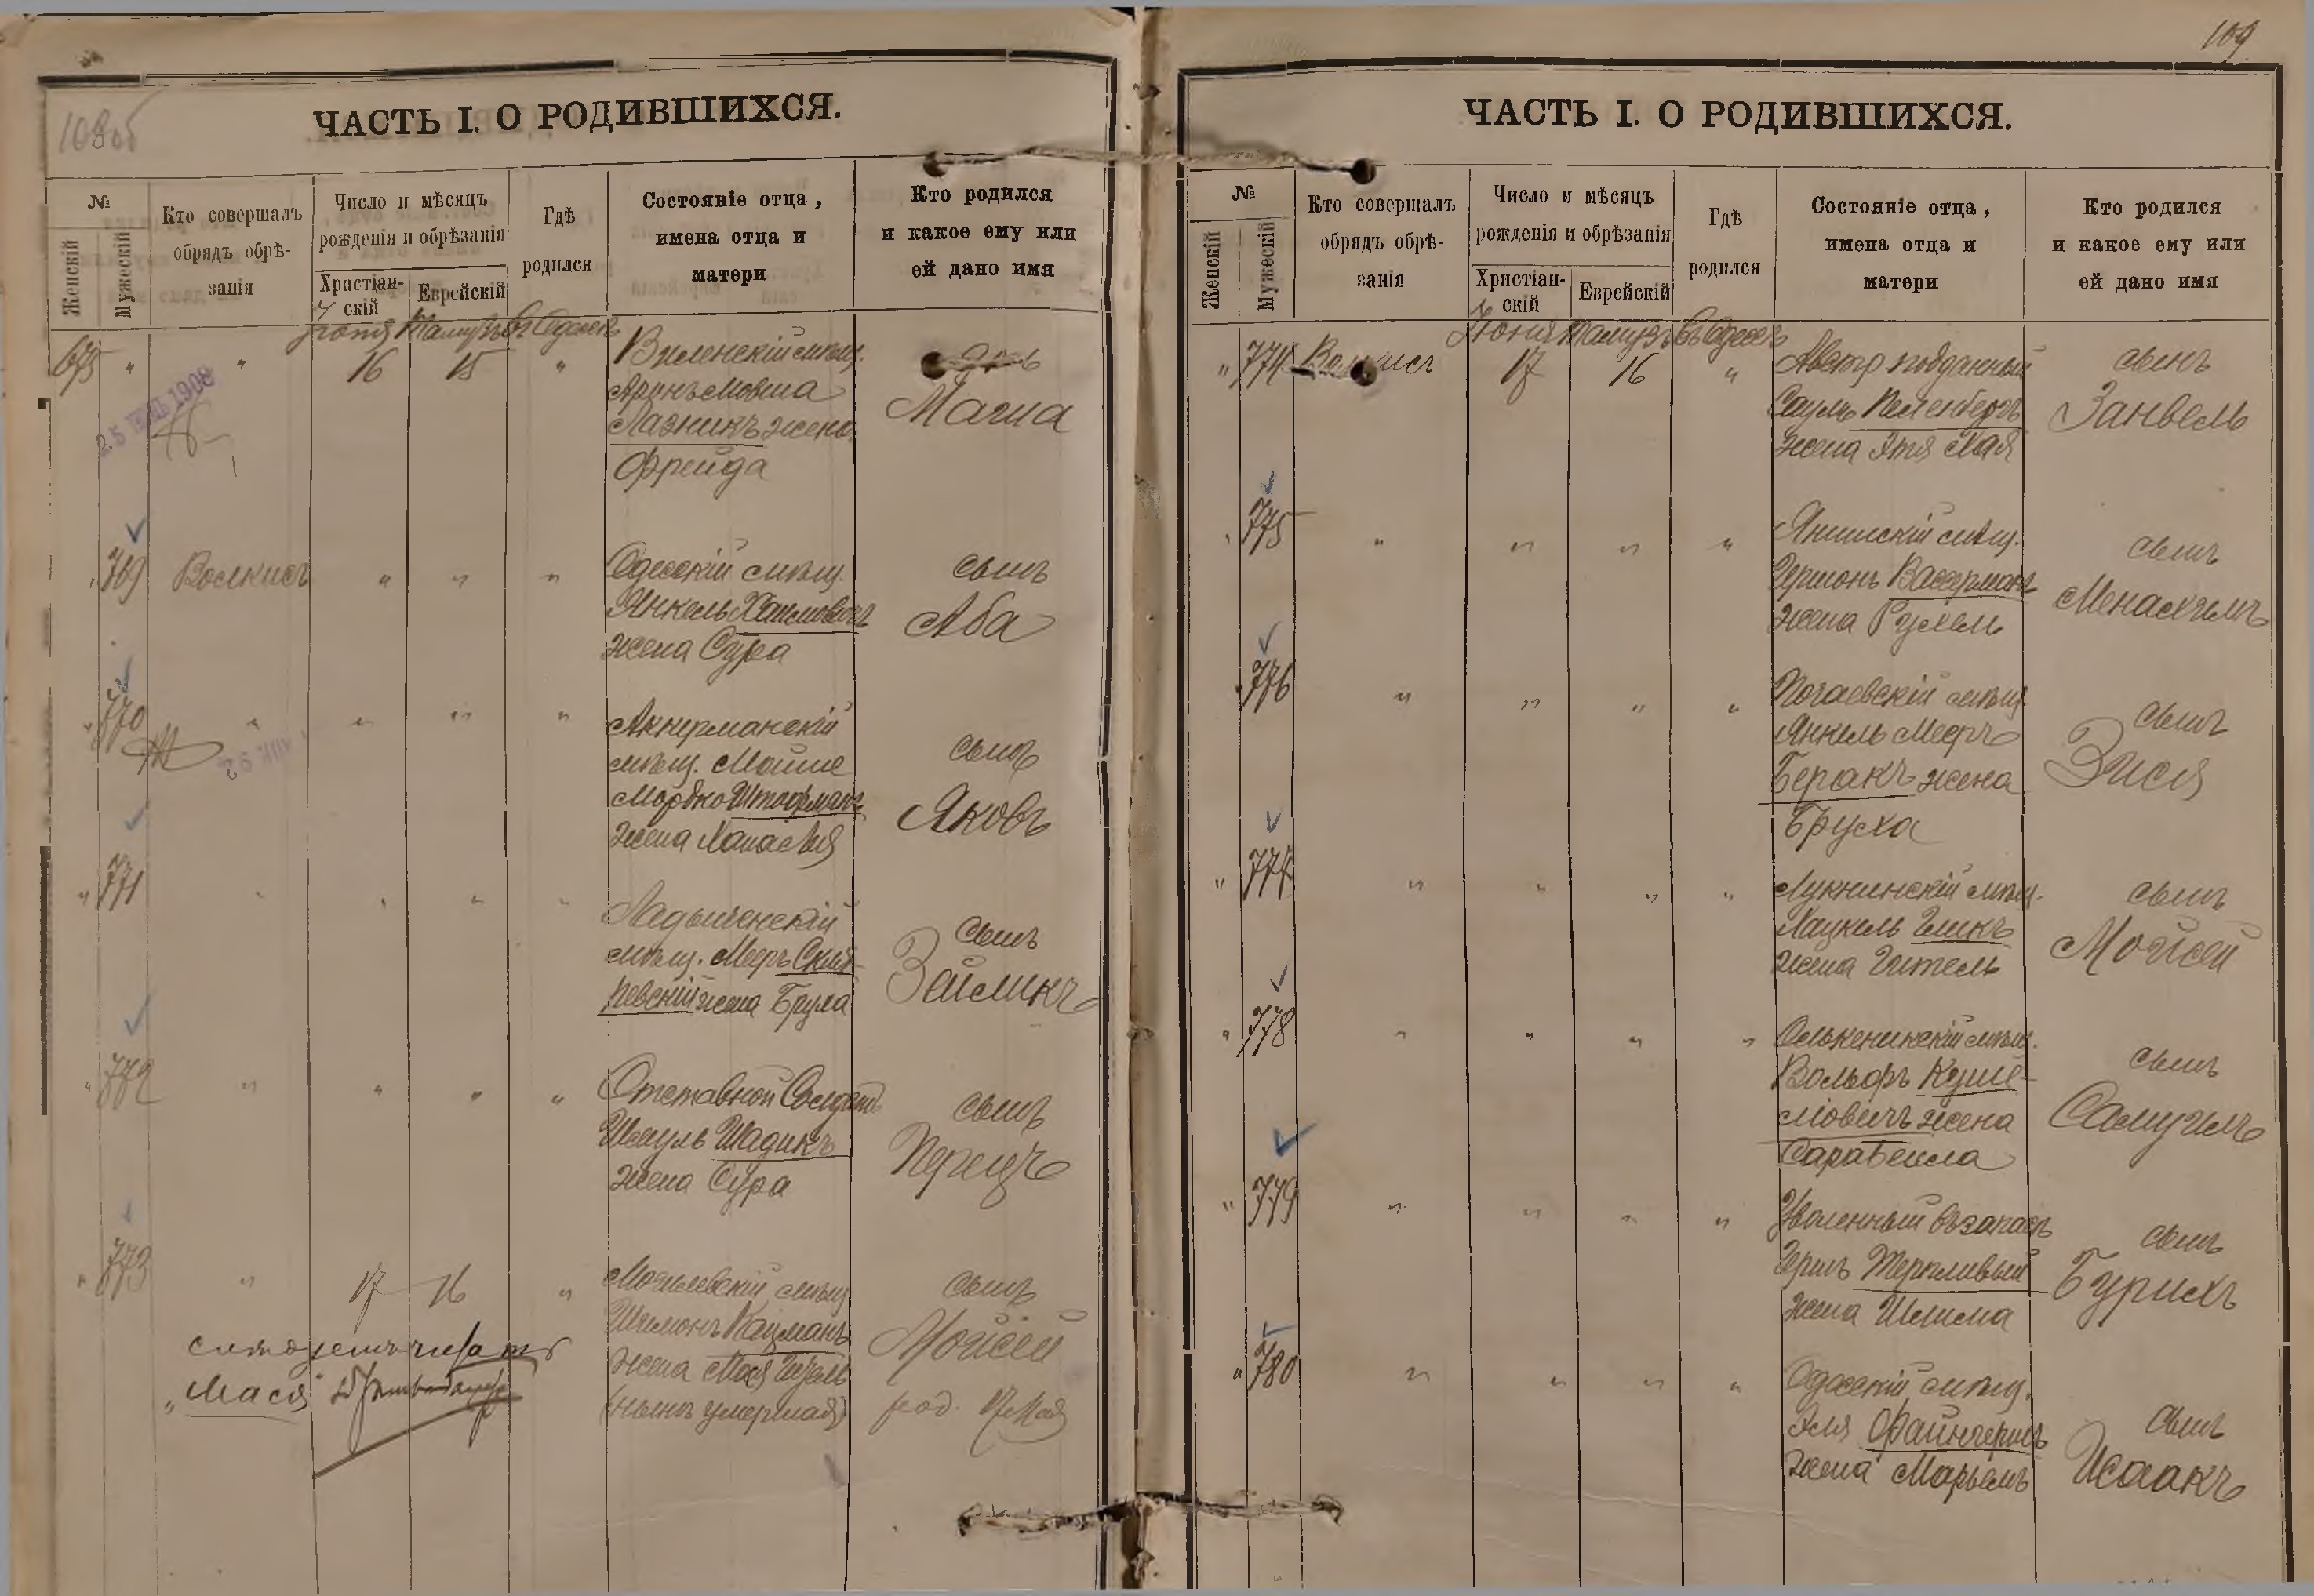 109
108об
ЧАСТЬ I. О РОДИВШИХСЯ.
№
Женскій
Мужескій
Кто совершалъ
обрядъ обрѣ-
занія
Число и мѣсяцъ
рожденія и обрѣзанія
Христіан-
скій
Еврейскій
Гдѣ
родился
Состояніе отца,
имена отца и
матери
Кто родился
и какое ему или
ей дано имя
Тамузъ въ Одессѣ
675 " " 16 15 " Виленскій мѣщ.
Аронъ Мовша
Лазникъ жена
Фрейда
дочь
25 1908
" 769 Волкисъ " " " Одесскій мѣщ.
Янкель Хаимовичъ
жена Сура
сынъ
Аба
" 770 " " " " Аккерманскій
мѣщ. Мойше
Мордко Штофманъ
жена Хана Лея
сынъ
Яковъ
" 771 " " " " Ладыженскій
мѣщ. Мееръ
жена
сынъ
Зейликъ
" 772 " " " " Отставной Солдатъ
Шадикъ
жена Сура
сынъ
Перецъ
" 773 " 17 16 " Могилевскій мѣщ.
Шимонъ Кацманъ
жена Мася
(нынѣ умершая)
сынъ
Мойсей
род. 17 Мая
"Мася"
ЧАСТЬ I. О РОДИВШИХСЯ.
№
Женскій
Мужескій
Кто совершалъ
обрядъ обрѣ-
занія
Число и мѣсяцъ
рожденія и обрѣзанія
Христіан-
скій
Еврейскій
Гдѣ
родился
Состояніе отца,
имена отца и
матери
Кто родился
и какое ему или
ей дано имя
Юня Тамузъ въ Одессѣ
" 774 Волкисъ 17 16 " Австр подданный
Сауль
жена Этя Хая
сынъ
Занвель
" 775 " " " " мѣщ.
Гершонъ Вассерманъ
жена Рухель
сынъ
Менахемъ
" 776 " " " " Почаевскій мѣщ.
Янкель Мееръ
Беракъ жена
Бруха
сынъ
Зися
" 777 " " " " мѣщ.
Хацкель Гликъ
жена Гитель
сынъ
Мойсей
" 778 " " " " Олькеникскій мѣщ.
Вольфъ Куше-
лiовичъ жена
Сара Бейла
сынъ
Самуилъ
" 779 " " " " Уволенный въ запасъ
Гершъ Терпливый
жена
сынъ
Бурихъ
" 780 " " " " Одесскій мѣщ.
Эля Файнгершъ
жена Марьемъ
сынъ
Исаакъ